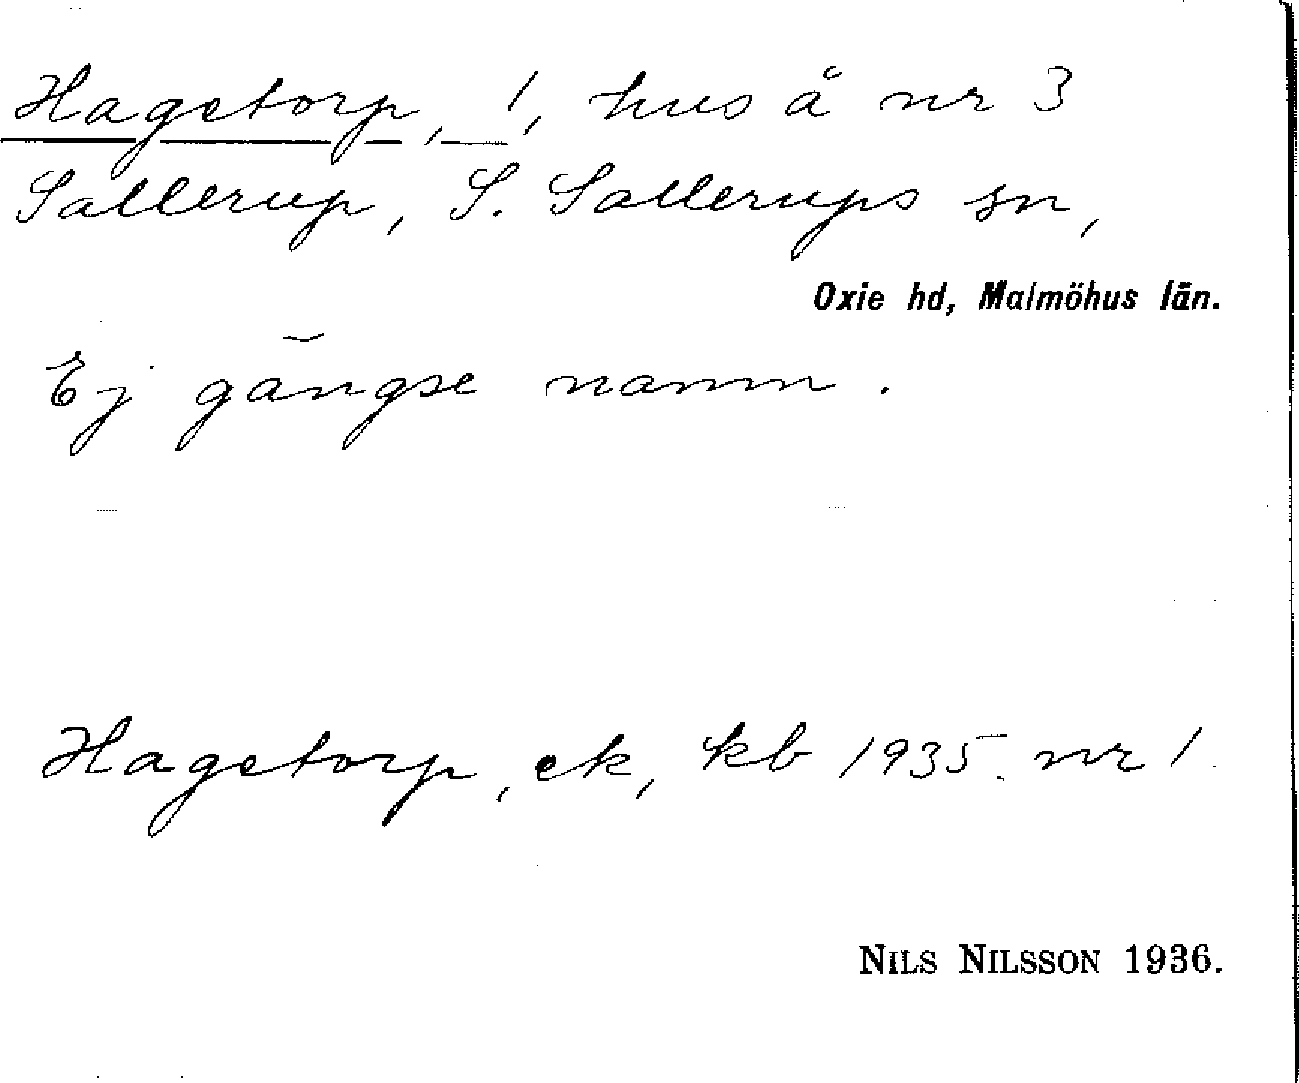 Hagstorp, 1, hus å nr 3
Sallerup, S. Sallerups sn,
Oxie hd, Malmöhus län.
Ej gängse namn.
Hagstorp, ek, kb 1935. nr 1
NILS NILSSON 1936.